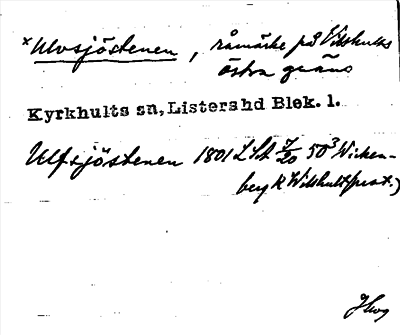 *Ulvsjöstenen, råmärke på Vilshults
östra gräns
Kyrkhults sn, Listershd Blek. l.
Ulfsjöstenen 1801 LSA 7/20 50³ Wicken-
berg R Wilshult